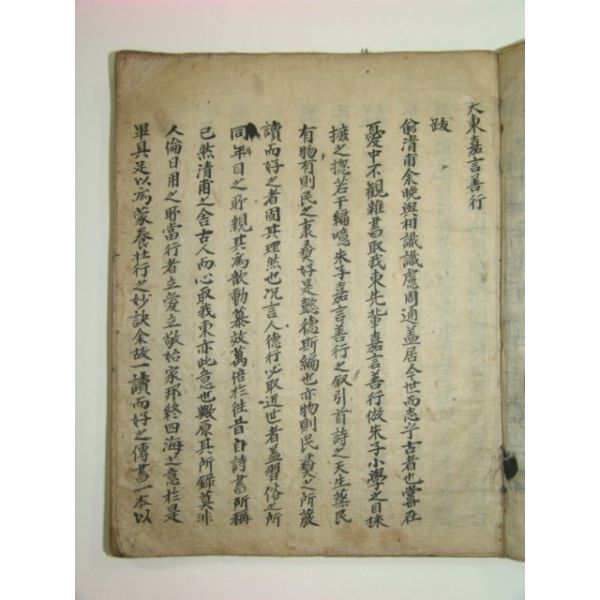 大東嘉言善行
跋
俞清甫余晚與相識識慮周通盖居今世而志乎古者也嘗在
憂中不觀雜書取我東先輩嘉言善行倣朱子小學之目採
摭之揔若干編噫朱子嘉言善行之叙引首詩之天生蒸民
有物有則民之秉彜好是懿德斯編也亦物則民彜之所蔵
讀而好之者固其理然也况言人德行必取近世者盖習俗之所
同年目之所親其爲歆動慕效萬倍於徃昔自詩書所稱
已然清甫之舍古人而心取我東亦此意也歟原其所錄莫非
人倫日用之所當行者立愛立敬始家邦終四海之意於是
畢具足以爲蒙養壮行之妙訣余故一讀而好之傳書一本以